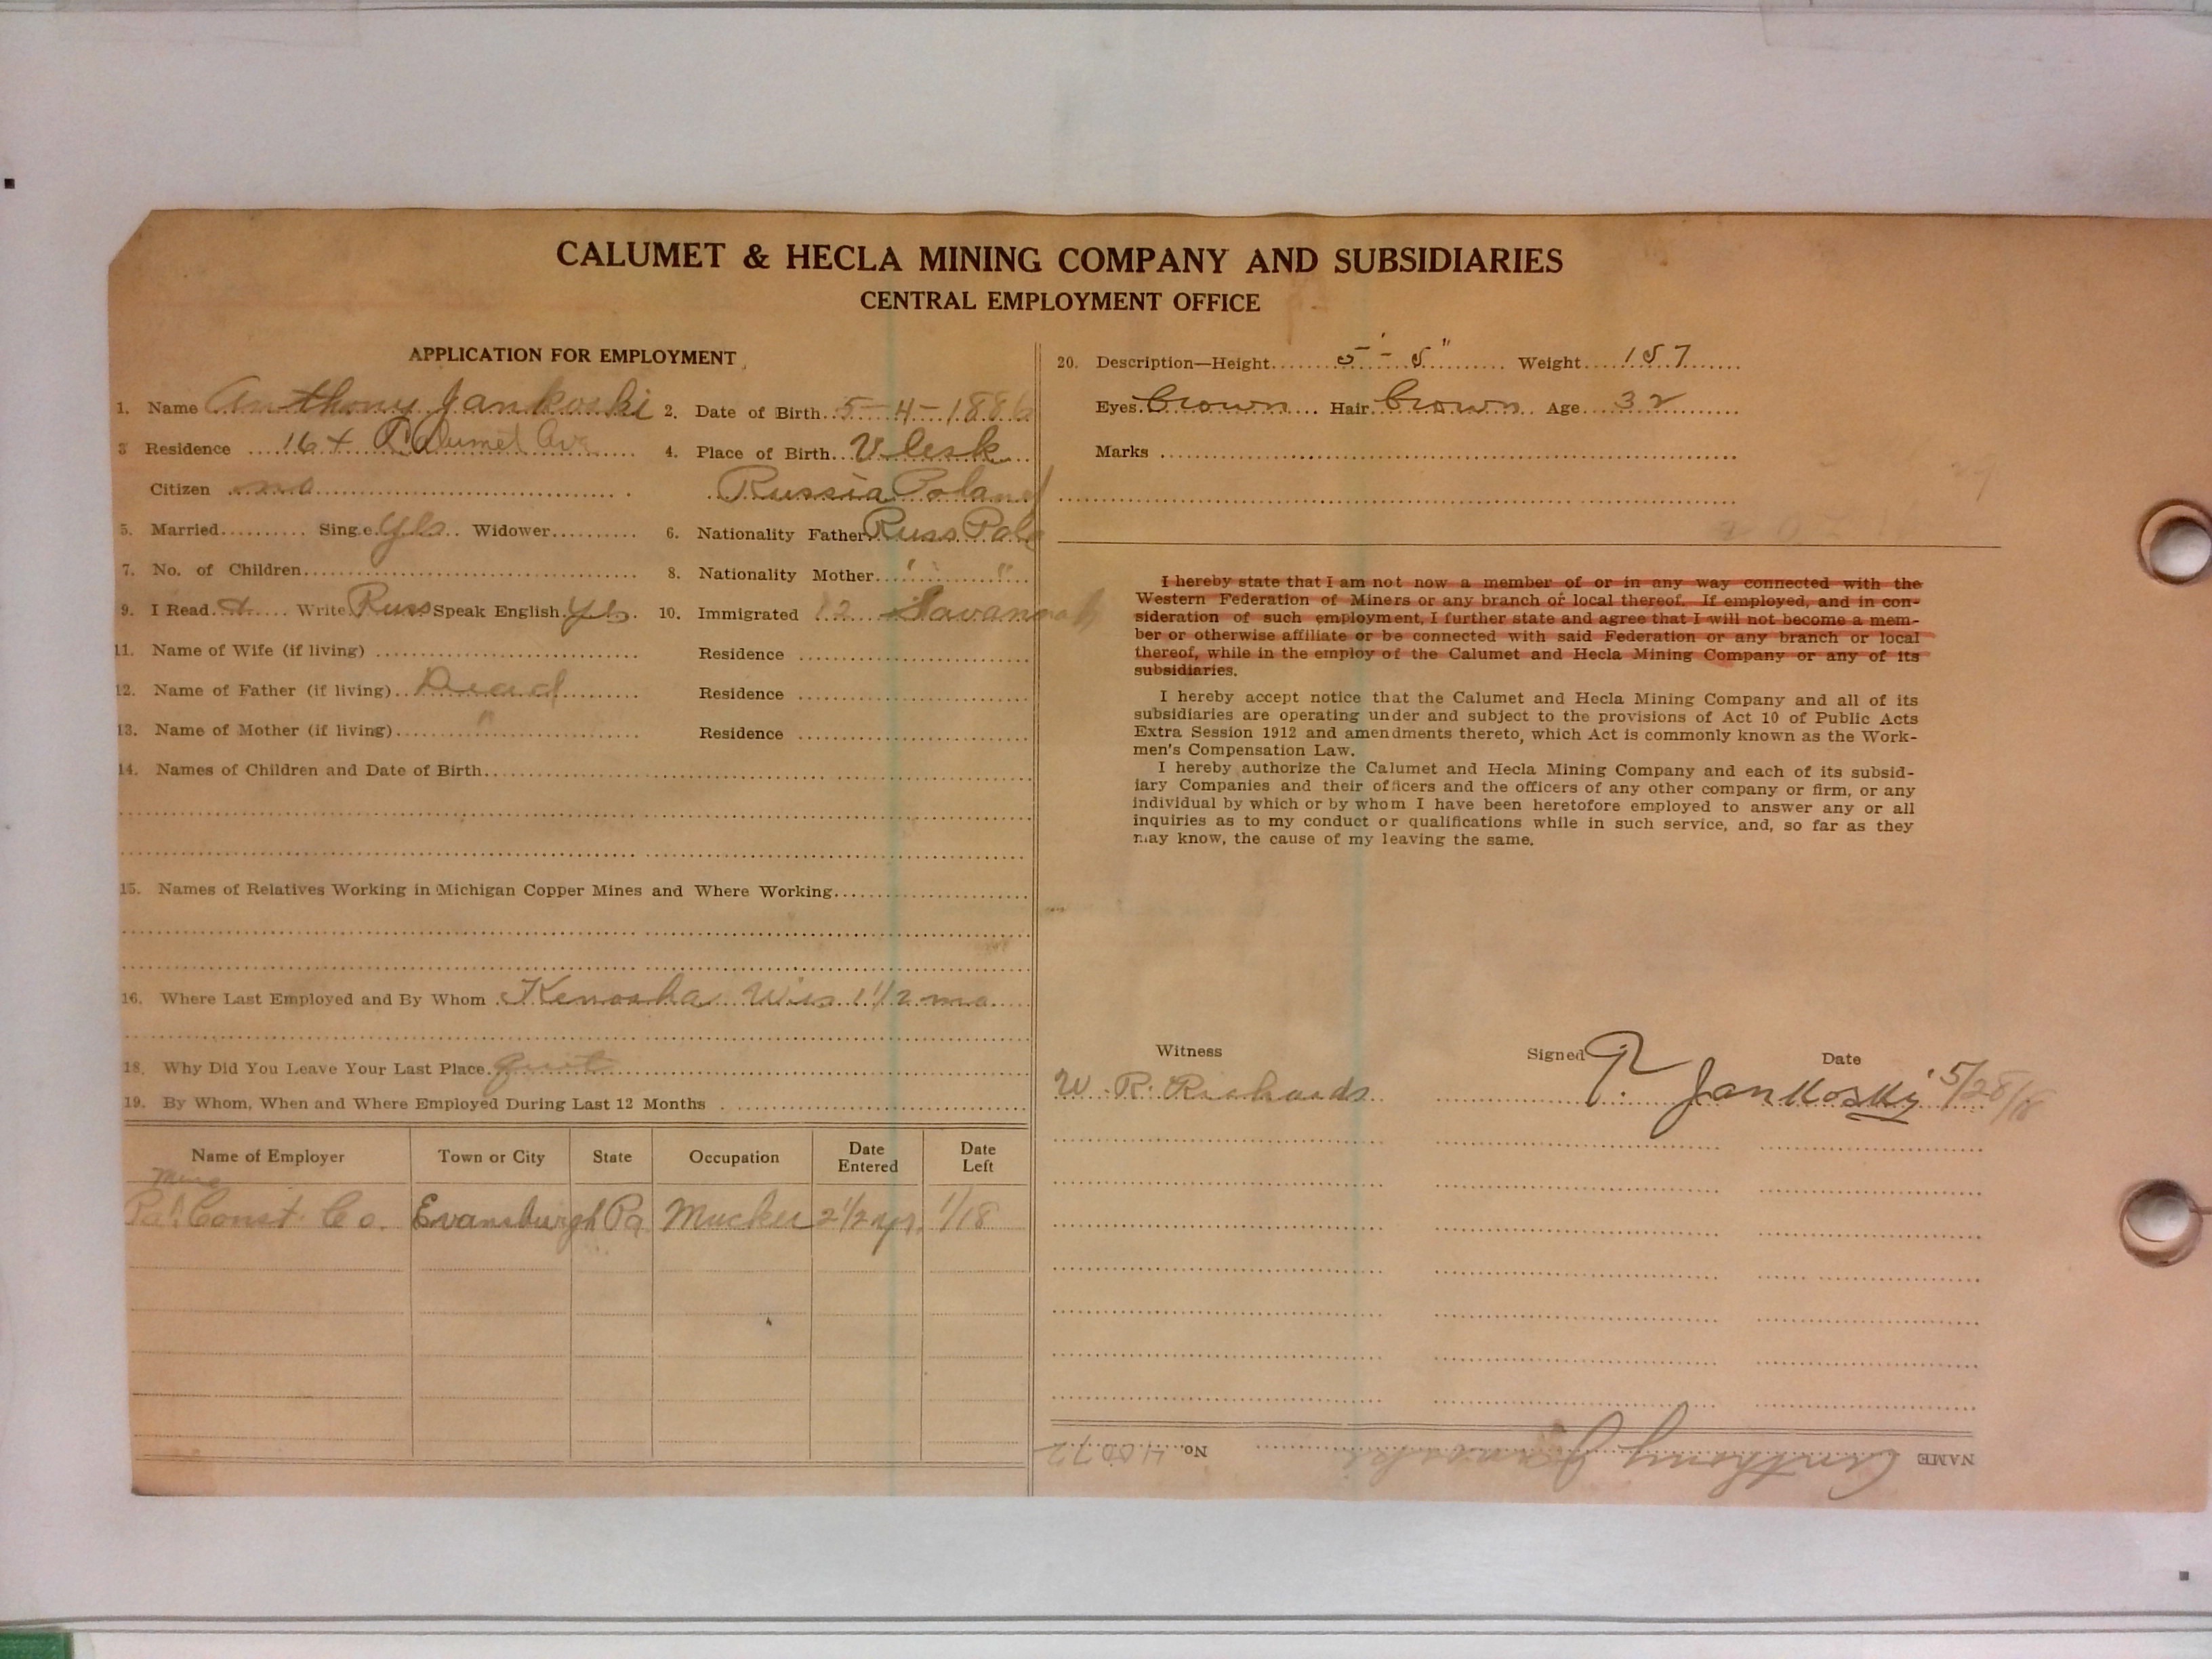 CALUMET & HECLA MINING COMPANY AND SUBSIDIARIES
CENTRAL EMPLOYMENT OFFICE
APPLICATION FOR EMPLOYMENT
1. Name Anthony Jankoski 2. Date of Birth 5-4-1886
3 Residence Calumet Ave 4. Place of Birth Vlesk
Citizen no Russia Poland
5. Married Single yes Widower 6. Nationality Father Russ Pole
7. No. of Children 8. Nationality Mother " "
9. I Read & Write Russ Speak English Yes 10. Immigrated 12 Savannah
11. Name of Wife (if living) Residence
12. Name of Father (if living) Dead Residence
13. Name of Mother (if living) " Residence
14. Names of Children and Date of Birth
15. Names of Relatives Working in Michigan Copper Mines and Where Working
16. Where Last Employed and By Whom Kenosha Wis 1 1/2 mo
18. Why Did You Leave Your Last Place quit
19. By Whom, When and Where Employed During Last 12 Months
Name of Employer Town or City State Occupation Date Entered Date Left
Const. Co. Evansburgh Pa. Mucker 2 1/2 yr. 1/18
20. Description—Height 5'-5" Weight 157
Eyes Brown Hair Brown Age 32
Marks
I hereby state that I am not now a member of or in any way connected with the
Western Federation of Miners or any branch or local thereof. If employed, and in con-
sideration of such employment, I further state and agree that I will not become a mem-
ber or otherwise affiliate or be connected with said Federation or any branch or local
thereof, while in the employ of the Calumet and Hecla Mining Company or any of its
subsidiaries.
I hereby accept notice that the Calumet and Hecla Mining Company and all of its
subsidiaries are operating under and subject to the provisions of Act 10 of Public Acts
Extra Session 1912 and amendments thereto, which Act is commonly known as the Work-
men's Compensation Law.
I hereby authorize the Calumet and Hecla Mining Company and each of its subsid-
iary Companies and their officers and the officers of any other company or firm, or any
individual by which or by whom I have been heretofore employed to answer any or all
inquiries as to my conduct or qualifications while in such service, and, so far as they
may know, the cause of my leaving the same.
Witness Signed Date
W. R. Richards Jankoski 5/28/18
NAME Anthony Jankoski No.